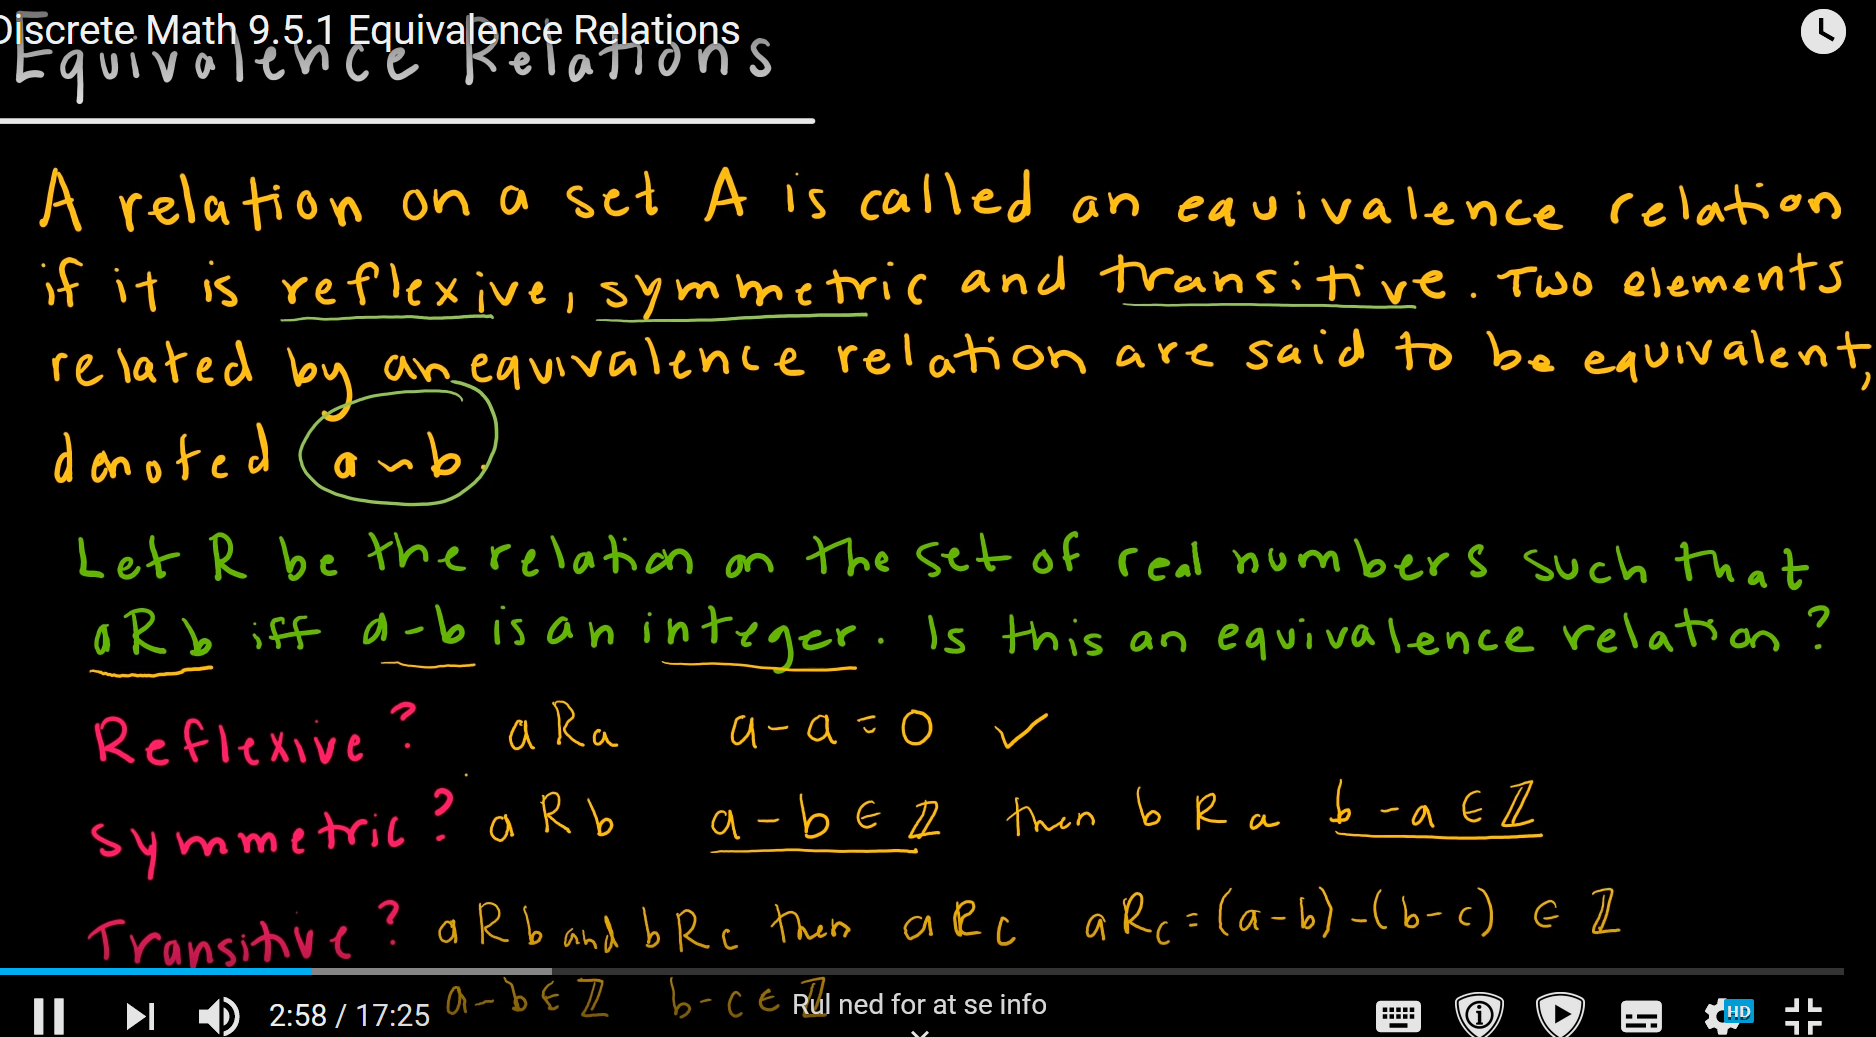 Discrete Math 9.5.1 Equivalence Relations
Equivalence Relations
A relation on a set A is called an equivalence relation
if it is reflexive, symmetric and transitive. Two elements
related by an equivalence relation are said to be equivalent,
denoted a ~ b.
Let R be the relation on the set of real numbers such that
aRb iff a-b is an integer. Is this an equivalence relation?
Reflexive? aRa a-a=0 ✓
Symmetric? aRb a-b∈ℤ then bRa b-a∈ℤ
Transitive? aRb and bRc then aRc aRc=(a-b)-(b-c)∈ℤ
a-b∈ℤ b-c∈ℤ
2:58 / 17:25 ned for at se info
HD